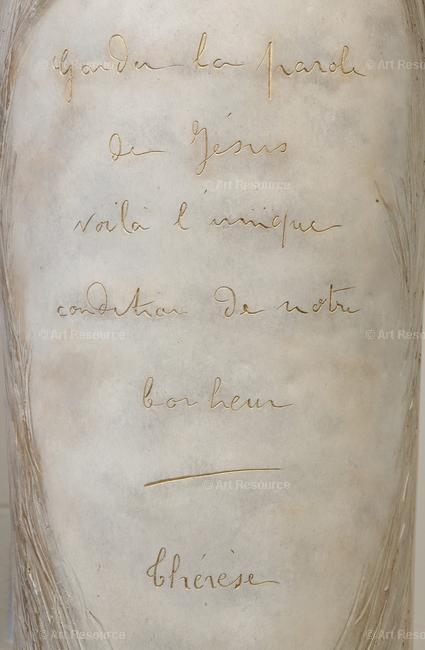 Garder la parole
de Jésus
voilà l'unique
condition de notre
bonheur
Thérèse
© Art Resource
© Art Resource
© Art Resource
© Art Resource
© Art Resource
© Art Resource
© Art Resource
© Art Resource